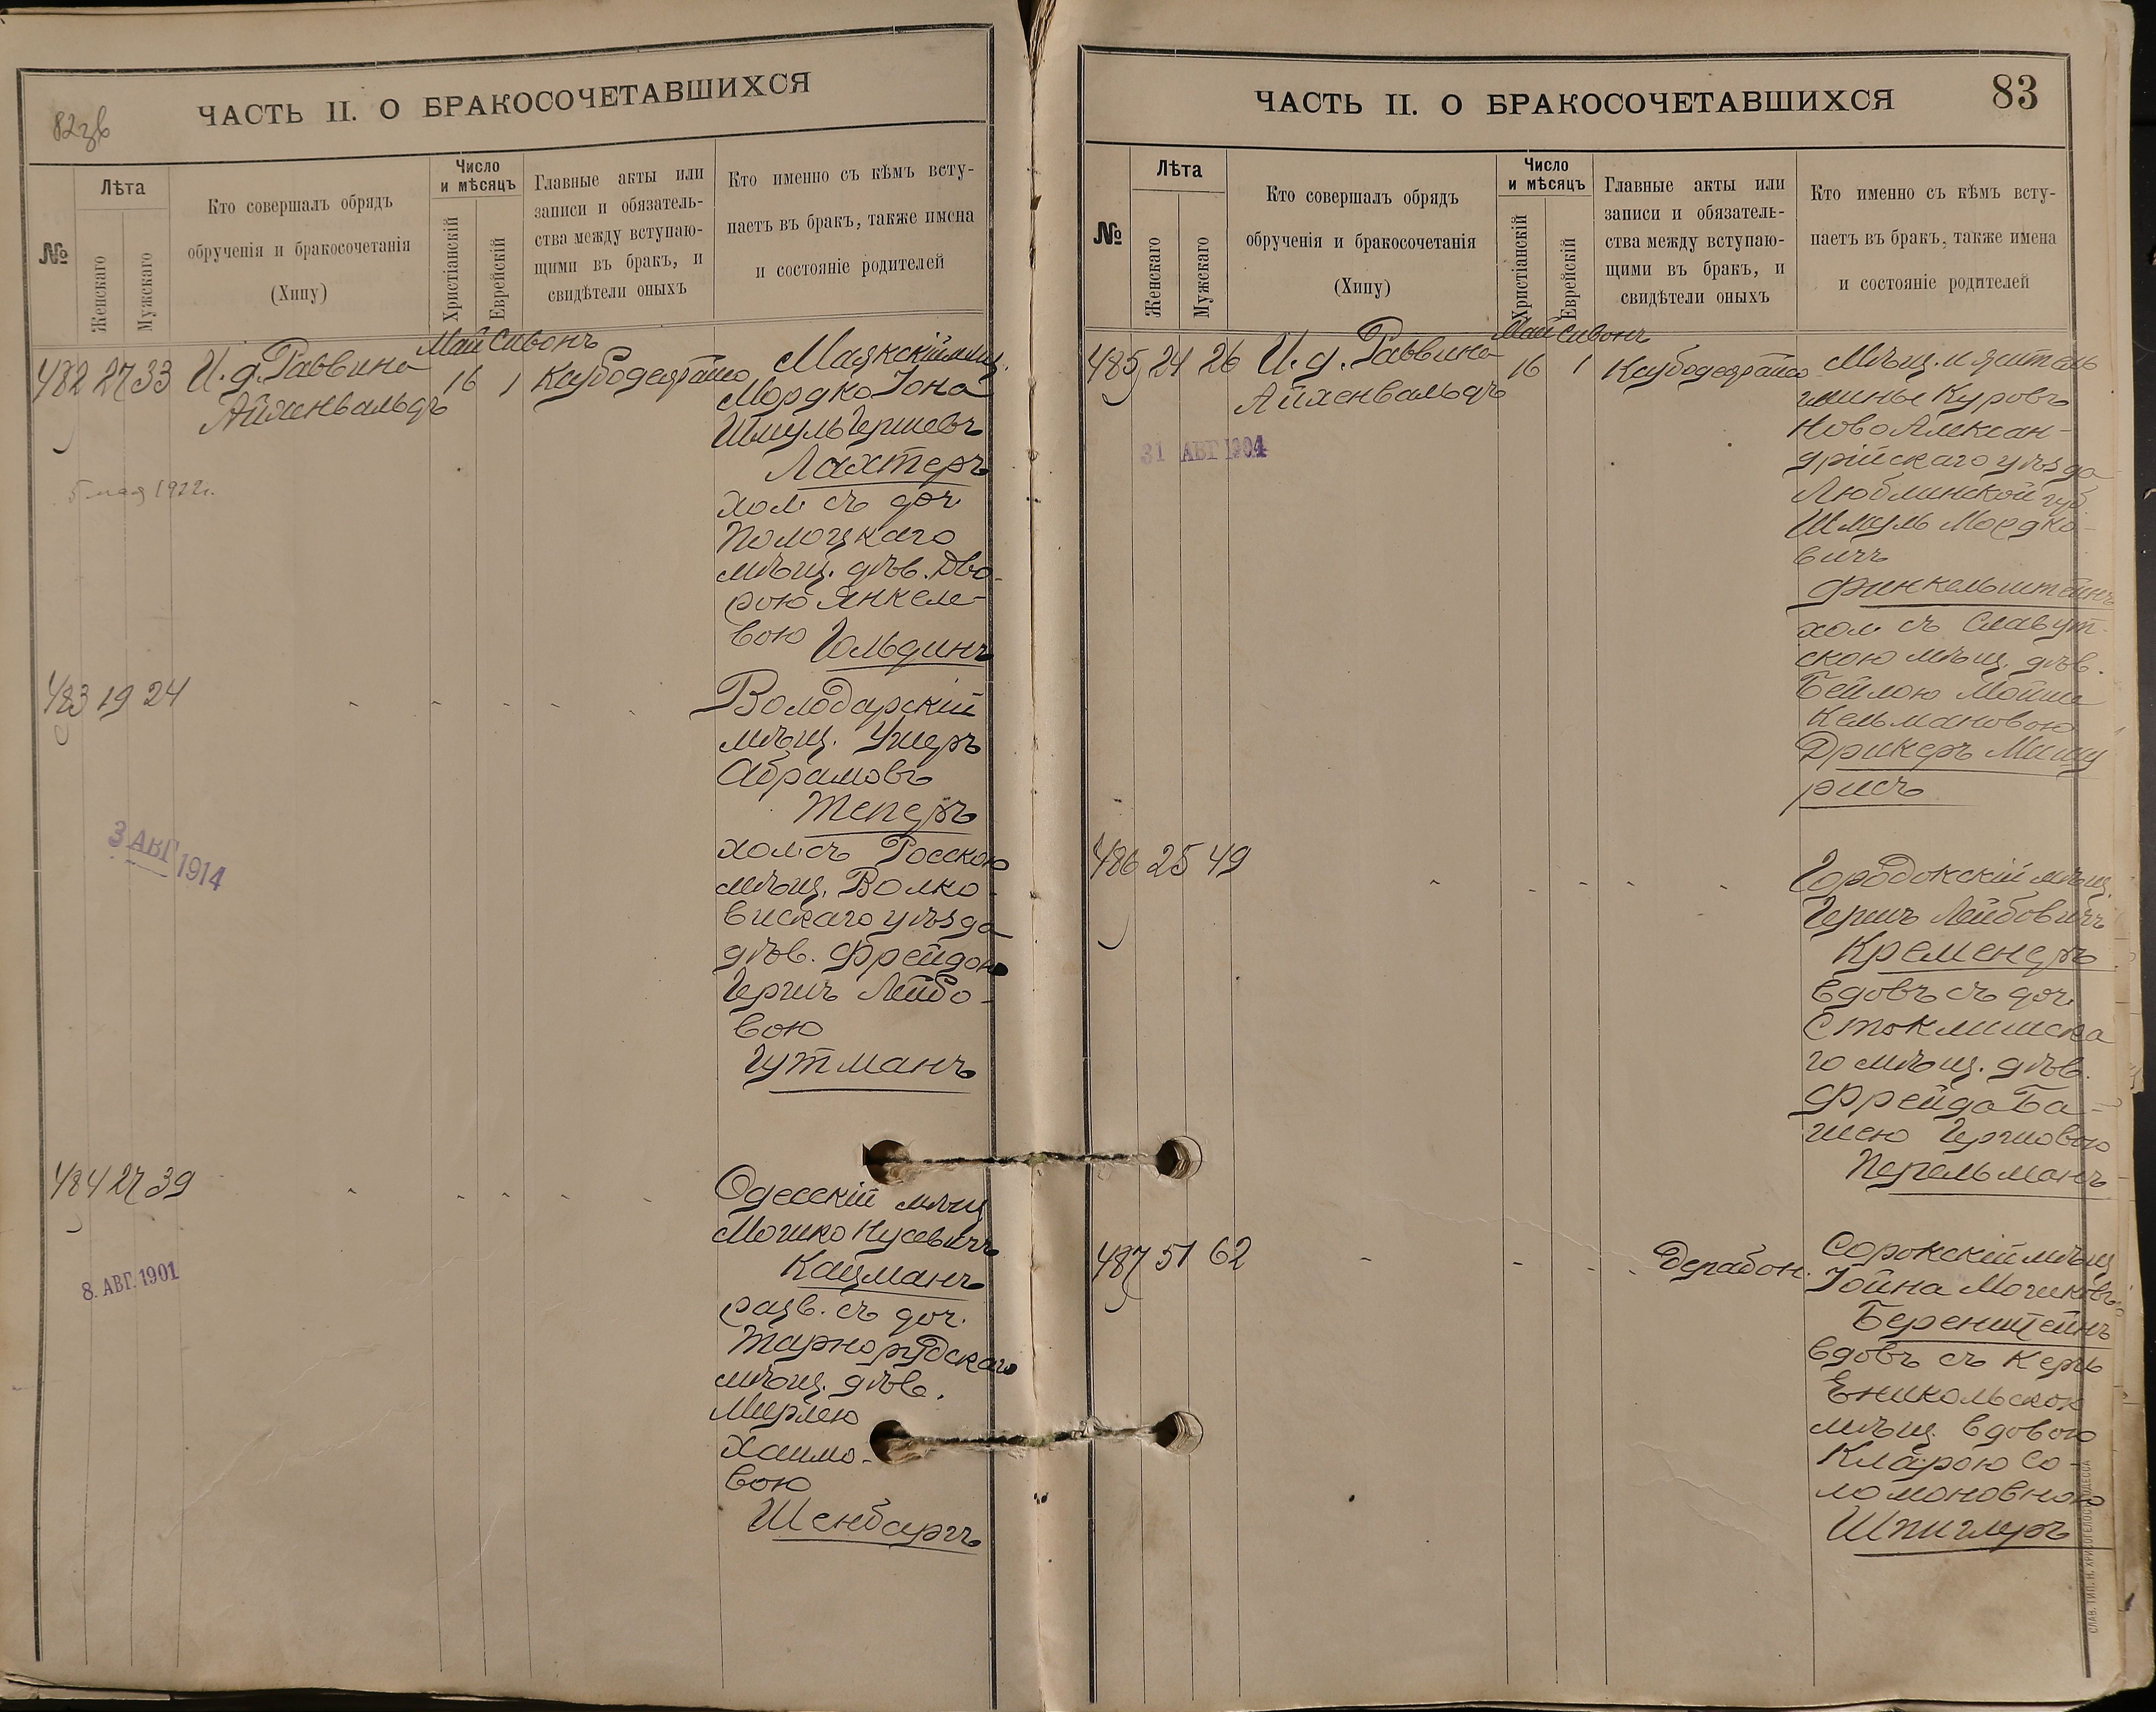 82зв
ЧАСТЬ II. О БРАКОСОЧЕТАВШИХСЯ
№
Лѣта
Женскаго
Мужскаго
Кто совершалъ обрядъ
обрученія и бракосочетанія
(Хипу)
Число
и мѣсяцъ
Христіанскій
Еврейскій
Главные акты или
записи и обязатель-
ства между вступаю-
щими въ бракъ, и
свидѣтели оныхъ
Кто именно съ кѣмъ всту-
паетъ въ бракъ, также имена
и состояніе родителей
Май Сивонъ
482 27 33 И. д. Раввина 16 1
Айхенвальдъ
5 мая 1922г.
Маякскій мѣщ.
Мордко Іона
Шмуль Гершевъ
Лахтеръ
хол. съ доч
Полоцкаго
мѣщ. дѣв. Дво-
рою Янкеле-
вою Гольдинъ
483 19 24
3 АВГ 1914
Володарскій
мѣщ. Ушеръ
Абрамовъ
Теперъ
хол. съ Росскою
мѣщ. Волко-
вискаго уѣзда
дѣв. Фрейдою
Гершъ Лейбо-
вою
Гутманъ
484 27 39
8. АВГ. 1901
Одесскій мѣщ
Мошко Нусевичъ
Кацманъ
разв. съ доч.
Тарнорудскаго
мѣщ. дѣв.
Мирлею
Хаимо-
вою
Шенбаргъ
ЧАСТЬ II. О БРАКОСОЧЕТАВШИХСЯ
83
№
Лѣта
Женскаго
Мужскаго
Кто совершалъ обрядъ
обрученія и бракосочетанія
(Хипу)
Число
и мѣсяцъ
Христіанскій
Еврейскій
Главные акты или
записи и обязатель-
ства между вступаю-
щими въ бракъ, и
свидѣтели оныхъ
Кто именно съ кѣмъ всту-
паетъ въ бракъ, также имена
и состояніе родителей
Май Сивонъ
485 24 26 И. д. Раввина 16 1
Айхенвальдъ
31 АВГ 1904
Мѣщ. и житель
гмины Куровъ
Ново Алексан-
дрійскаго уѣзда
Люблинской губ.
Шмуль Мордко-
вичъ
Финкельштейнъ
хол. съ Славут-
скою мѣщ. дѣв.
Бейлою Мойше
Кельмановою
Дрикеръ Мищ
рисъ
486 25 49
Городокскій мѣщ.
Гершъ Лейбовичъ
Кременеръ
вдовъ съ доч.
Стоклишска
го мѣщ. дѣв.
Фрейда Ба-
шею Гершовою
Перельманъ
487 51 62
Дерабон.
Сорокскій мѣщ
Іойна Мошковъ
Беренштейнъ
вдовъ съ Керчь
Еникольскою
мѣщ. вдовою
Кларою Со-
ломоновною
Шпиглеръ
СЛАВ. ТИП. Н. ХРИСОГЕЛОСЪ ОДЕССА